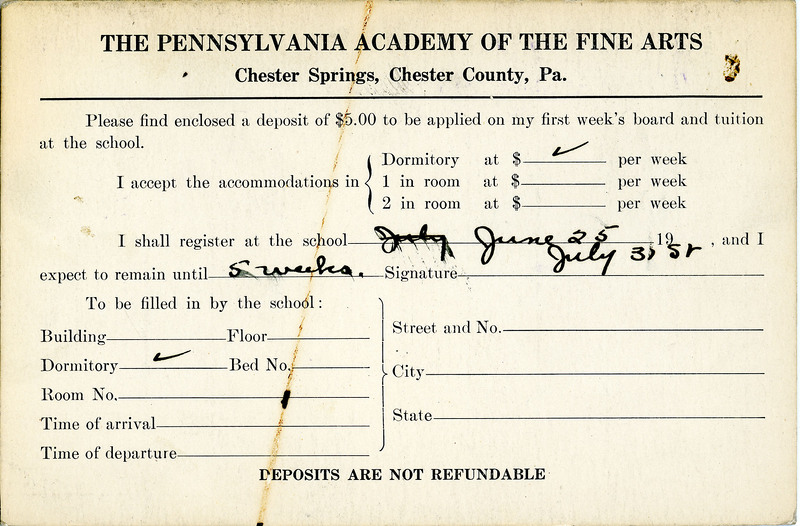 THE PENNSYLVANIA ACADEMY OF THE FINE ARTS
Chester Springs, Chester County, Pa.
Please find enclosed a deposit of $5.00 to be applied on my first week's board and tuition
at the school.
I accept the accommodations in
Dormitory at $ ✓ per week
1 in room at $ per week
2 in room at $ per week
I shall register at the school July June 25 19 , and I
July 31 st
expect to remain until 5 weeks. Signature
To be filled in by the school:
Building Floor
Dormitory ✓ Bed No.
Room No.
Time of arrival
Time of departure
Street and No.
City
State
DEPOSITS ARE NOT REFUNDABLE